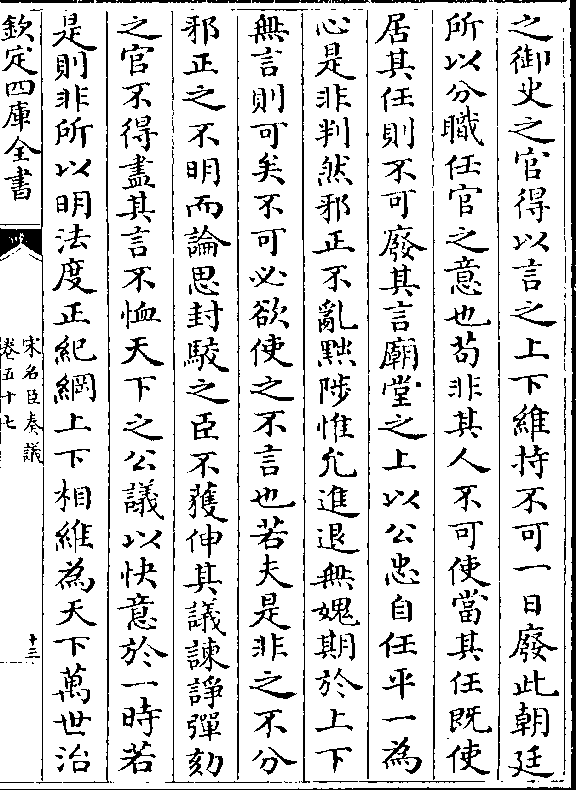 之御史之官得以言之上下維持不可一日廢此朝廷
所以分職任官之意也苟非其人不可使當其任既使
居其任則不可廢其言廟堂之上以公忠自任平一為
心是非判然邪正不亂黜陟惟允進退無媿期於上下
無言則可矣不可必欲使之不言也若夫是非之不分
邪正之不明而論思封駮之臣不獲伸其議諫諍彈劾
之官不得盡其言不恤天下之公議以快意於一時若
是則非所以明法度正紀綱上下相維為天下萬世治
欽定四庫全書
宋名臣奏議
卷五十七
十三